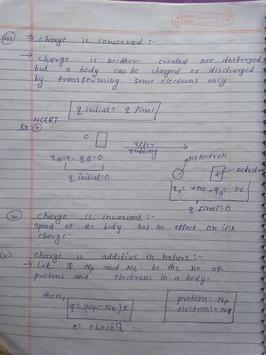 (iii) → charge is conserved :-
→ charge is neither created nor destroyed
but a body can be charged or discharged
by transferring some electrons only
q initial = q final
NCERT
Ex:
after
rubbing
qA=0, qB=0
q initial=0
n electron
qA=+ne, qB=-ne
q final=0
(iv) charge is invariant :-
speed of the body has no effect on its
charge
(v) charge is additive in nature :-
→ Let Np and Ne be the no of
protons and electrons in a body.
then,
q=(Np-Ne)e
protons= Np
electrons= Ne